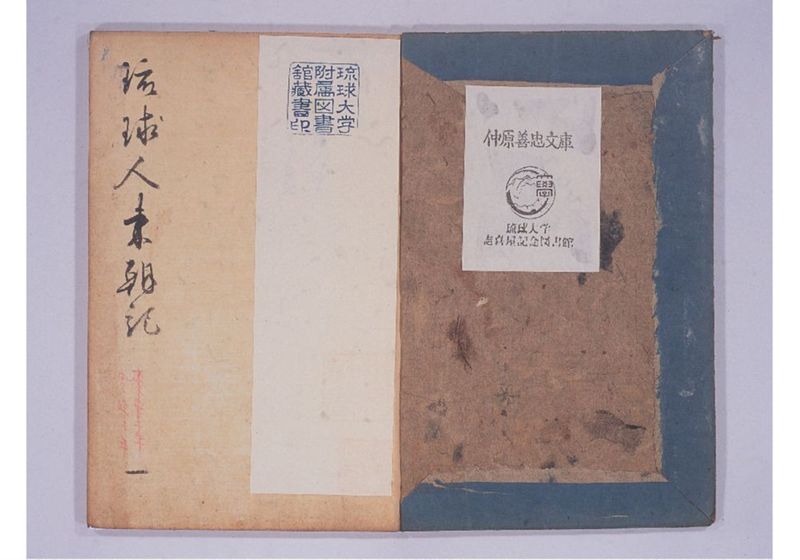 仲原善忠文庫
琉球大学
志喜屋記念図書館
琉球大学
附属図書
館藏書印
琉球人来朝記
一